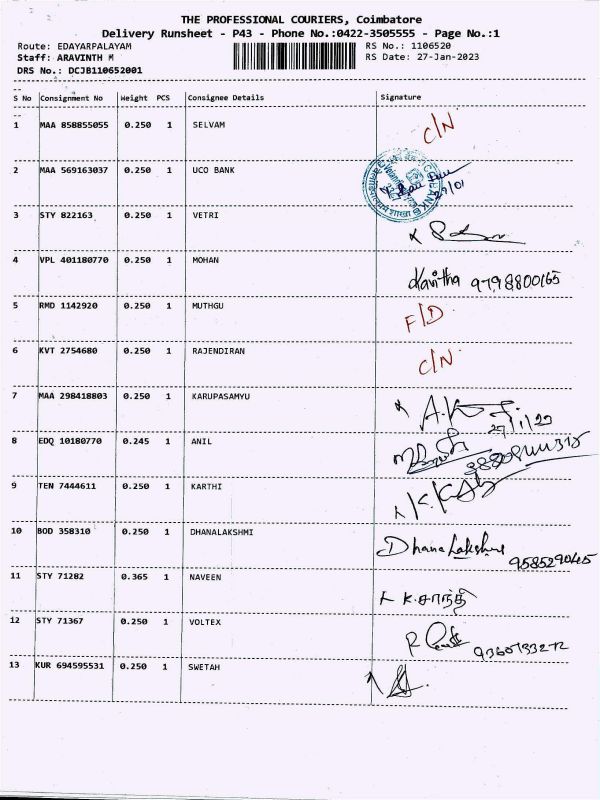 THE PROFESSIONAL COURIERS, Coimbatore
Delivery Runsheet - P43 - Phone No.:0422-3505555 - Page No.:1
Route: EDAYARPALAYAM RS No.: 1106520
Staff: ARAVINTH M RS Date: 27-Jan-2023
DRS No.: DCJB110652001
S No Consignment No Weight PCS Consignee Details Signature
1 MAA 858855055 0.250 1 SELVAM C/N
2 MAA 569163037 0.250 1 UCO BANK
3 STY 822163 0.250 1 VETRI
4 VPL 401180770 0.250 1 MOHAN Kavitha 9798800165
5 RMD 1142920 0.250 1 MUTHGU F/D
6 KVT 2754680 0.250 1 RAJENDIRAN C/N
7 MAA 298418803 0.250 1 KARUPASAMYU
8 EDQ 10180770 0.245 1 ANIL
9 TEN 7444611 0.250 1 KARTHI
10 BOD 358310 0.250 1 DHANALAKSHMI Dhana Lakshmi 9585290465
11 STY 71282 0.365 1 NAVEEN K. சாந்தி
12 STY 71367 0.250 1 VOLTEX
13 KUR 694595531 0.250 1 SWETAH